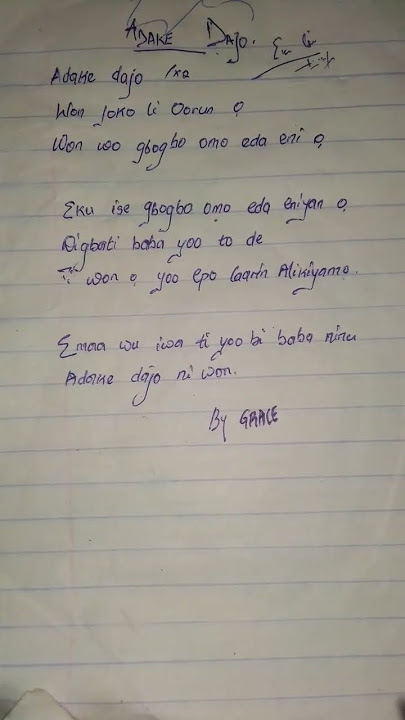 ADAKE DAJO.
Adake dajo /x2
Won joko li Oorun ọ
Won wo gbogbo omo eda eni ọ
Eku ise gbogbo omo eda eniyan ọ
Nigbati baba yoo to de
Ti won ọ yoo epo laarin Alikiyamo.
Emaa wu iwa ti yoo bi baba ninu
Adake dajo ni won.
By GRACE